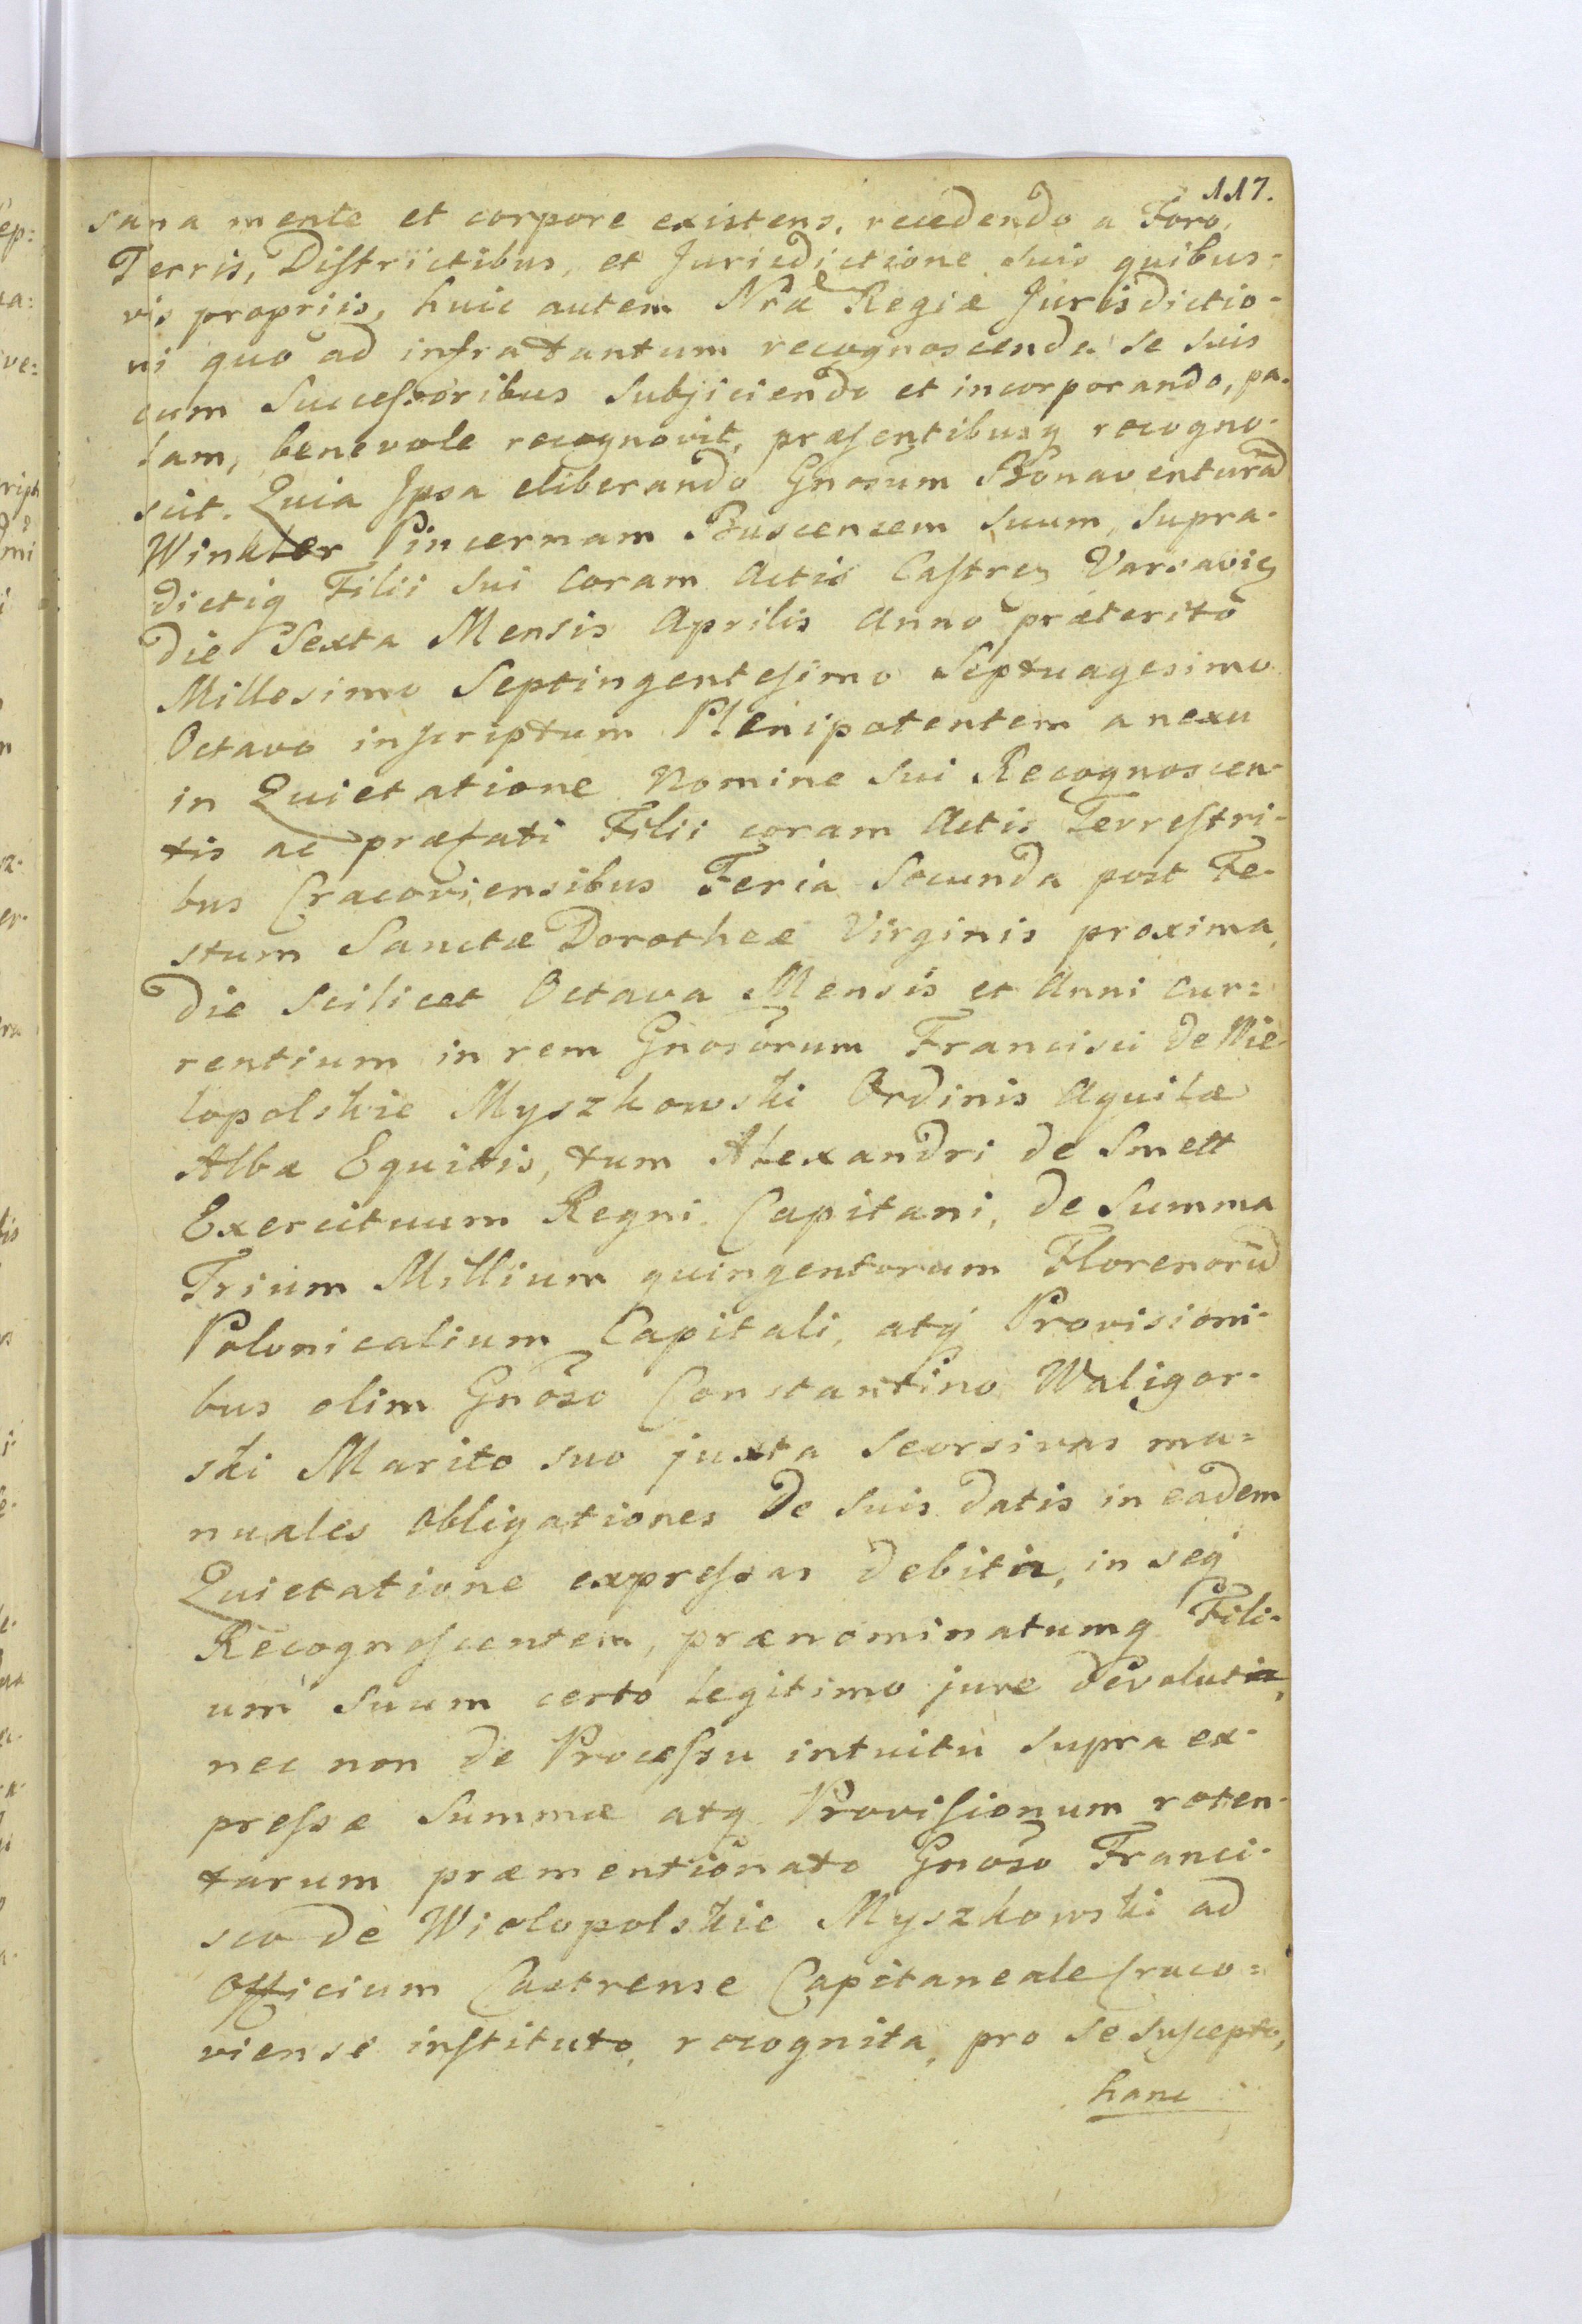 117.
sana mente et corpore existens, recedendo a Foro,
Terris, Districtibus, et Jurisdictione suis quibus-
vis propriis, huic autem Nrae Regiæ Jurisdictio-
ni quo ad infra tantum recognoscenda se suis
cum Successoribus subjiciendo et incorporando, pa-
lam, benevole recognovit, præsentibusq recogno-
scit. Quia Ipsa eliberando Gnosum Bonaventurã
Winkler Pincernam Buscensem suum, supra-
dictiq Filii sui coram Actis Castreñ Varsavieñ
die Sexta Mensis Aprilis Anno præterito
Millesimo Septingentesimo Septuagesimo
Octavo inscriptum Plenipotentem a nexu
in Quietatione Nomine sui Recognoscen-
tis ac præfati Filii coram Actis Terrestri-
bus Cracoviensibus Feria Secunda post Fe-
stum Sanctæ Dorotheæ Virginis proxima,
die scilicet Octava Mensis et Anni cur=
rentium in rem Gnosorum Francisci de Wie-
lopolskie Myszkowski Ordinis Aquilæ
Albæ Equitis, tum Alexandri de Smett
Exercituum Regni Capitani, de Summa
Trium Millium quingentorum Florenorũ
Polonicalium Capitali, atq Provisioni-
bus olim Gnoso Constantino Waligor-
ski Marito suo juxta seorsivas ma=
nuales obligationes de suis datis in eadem
Quietatione expressas debitis, in seq
Recognoscentem, prænominatumq Fili-
um suum certo legitimo jure devolutis,
nec non de Processu intuitu supra ex-
pressæ Summæ atq Provisionum reten-
tarum præmentionato Gnoso Franci-
sco de Wielopolskie Myszkowski ad
Officium Castrense Capitaneale Craco=
viense instituto, recognita, pro se suscepto,
hanc